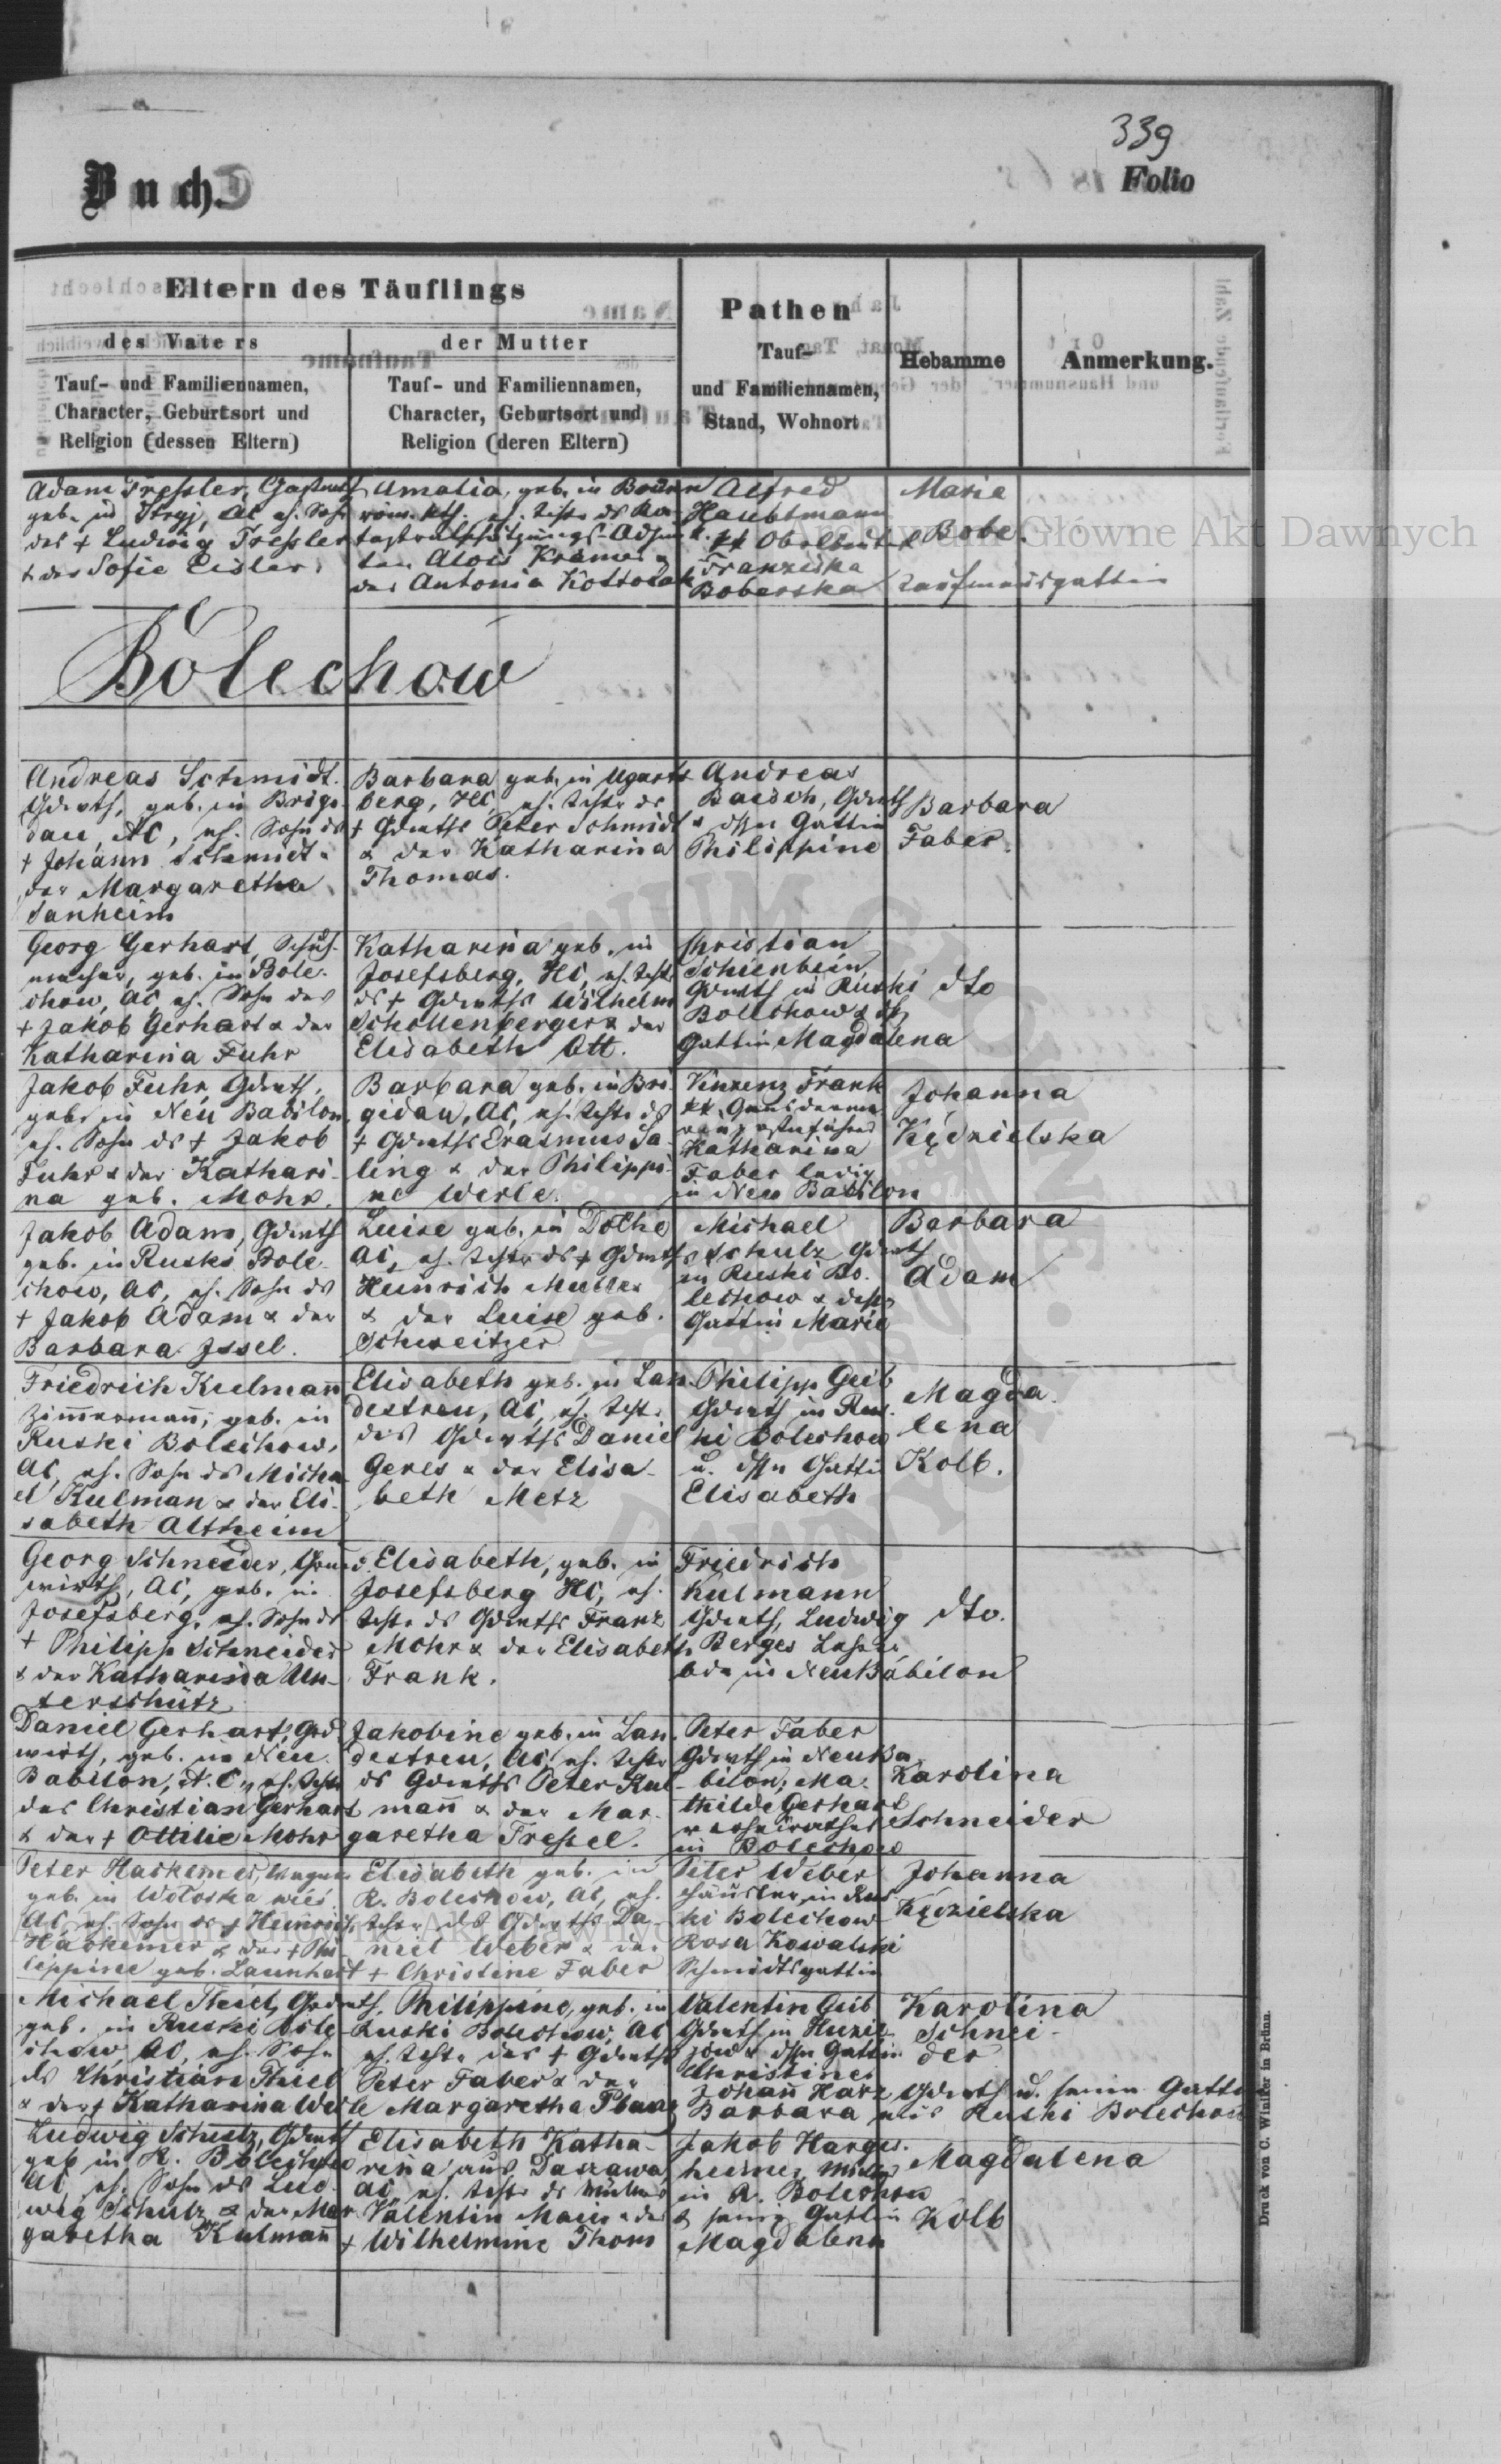 339
Buch.
Folio
Eltern des Täuflings
des Vaters
der Mutter
Tauf- und Familiennamen,
Character, Geburtsort und
Religion (dessen Eltern)
Tauf- und Familiennamen,
Character, Geburtsort und
Religion (deren Eltern)
Pathen
Tauf-
und Familiennamen,
Stand, Wohnort
Hebamme
Anmerkung.
Adam Tressler,
geb. in Stryj, AC eh. Sohn
des + Ludwig Tressler
& der Sofie Eisler.
Amalia, geb. in
röm. kth. eh. Tochter ds
Alois Kramer &
der Antonia
Alfred
Hauptmann
Franziska
Boberska
Marie
Bobe.
Kaufmannsgattin
Bolechow
Andreas Schmidt.
Gdwth, geb. in Brigi-
dau, AC, eh. Sohn ds
+ Johann Schmidt &
der Margaretha
Sanheim
Barbara geb. in Ugarts
berg, HC, eh. Tochter ds
+ Gdwths Peter Schmidt
& der Katharina
Thomas.
Andreas
Baisch, Gdwth
& dssn Gattin
Philippine
Barbara
Faber.
Georg Gerhart, Schuh-
macher, geb. in Bole-
chow, AC eh. Sohn des
+ Jakob Gerhart & der
Katharina Fuhr
Katharina geb. in
Josefsberg, HC, eh. Tocht.
ds + Gdwths Wilhelm
Schollenberger & der
Elisabeth Ott.
Christian
Schienbein,
Gdwth in Ruski
Bolechow &
Gattin Magdalena
dto
Jakob Fuhr, Gdwth,
geb. in Neu Babilon,
eh. Sohn ds + Jakob
Fuhr & der Kathari-
na geb. Mohr.
Barbara geb. in Bri-
gidau, AC, eh. Tochter ds
+ Gdwths Erasmus Sa-
ling & der Philippi-
ne Werle.
Vinzenz Frank
Katharina
Faber ledig
in Neu Babilon
Johanna
Kędzielska
Jakob Adam, Gdwth
geb. in Ruski Bole-
chow, AC, eh. Sohn ds
+ Jakob Adam & der
Barbara Issel.
Luise geb. in Dolhe
AC, eh. Tochter ds + Gdwths
Heinrich Muller
& der Luise geb.
Schweitzer
Michael
Schulz Gdwth
in Ruski Bo-
lechow & dessn
Gattin Marie
Barbara
Adam
Friedrich Kulmann
Zimmermann, geb. in
Ruski Bolechow,
AC, eh. Sohn ds Micha-
el Kulman & der Eli-
sabeth Altheim
Elisabeth geb. in Lan-
destreu, AC, eh. Tocht.
des Gdwths Daniel
Geres & der Elisa-
beth Metz
Philipp Geib
Gdwth in Rus-
ki Bolechow
u. dssn Gattin
Elisabeth
Magda-
lena
Kolb.
Georg Schneider, Grund-
wirth, AC, geb. in
Josefsberg, eh. Sohn ds
+ Philipp Schneider
& der Katharina Un-
terschütz
Elisabeth, geb. in
Josefsberg HC, eh.
Tocht. ds Gdwths Franz
Mohr & der Elisabeth
Frank.
Friedrich
Kulmann
Gdwth, Ludwig
Berges Lehrer
bde in Neu Babilon
dto.
Daniel Gerhart, Grd-
wirth, geb. in Neu-
Babilon, A.C.,
des Christian Gerhart
& der + Ottilie Mohr
Jakobine geb. in Lan-
destreu, AC, eh. Tochter
ds Gdwths Peter Kul-
mann & der Mar-
garetha Tressel.
Peter Faber
Gdwth in Neu Ba-
bilon, Ma-
thilde Gerhart
verheirathet
in Bolechow
Karolina
Schneider
Peter Harkemer, Wagner
geb. in Wołoska wieś
AC, eh. Sohn ds + Heinrich
Harkemer & der + Phi-
lippine geb. Launhart
Elisabeth geb. in
R. Bolechow, AC, eh.
Tochter des Gdwths Da-
niel Weber & der
+ Christine Faber
Peter Weber
Häusler in Rus-
ki Bolechow
Rosa Kowalski
Schmidtsgattin
Johanna
Kędzielska
Michael Theil, Grdwth,
geb. in Ruski Bole-
chow, AC, eh. Sohn
ds Christian Theil
& der + Katharina Werle
Philippine, geb. in
Ruski Bolechow, AC
eh. Tocht. des + Gdwths
Peter Faber & der
Margaretha
Valentin Geib
Gdwth in
& dssn Gattin
Christine
Johann Harz, Gdwth u. seine Gattin
Barbara aus Ruski Bolechow
Karolina
Schnei-
der
Ludwig Schulz, Gdwth
geb in R. Bolechow
AC, eh. Sohn ds Lud-
wig Schulz & der Mar-
garetha Kulmann
Elisabeth Katha-
rina aus Daszawa,
AC eh. Tocht. ds Müllers
Valentin Mauer & der
+ Wilhelmine Thom
Jakob Harges-
heimer, Müller
in R. Bolechow
& seine Gattin
Magdalena
Magdalena
Kolb
Druck von C. Winiker in Brünn.
Archiwum Główne Akt Dawnych